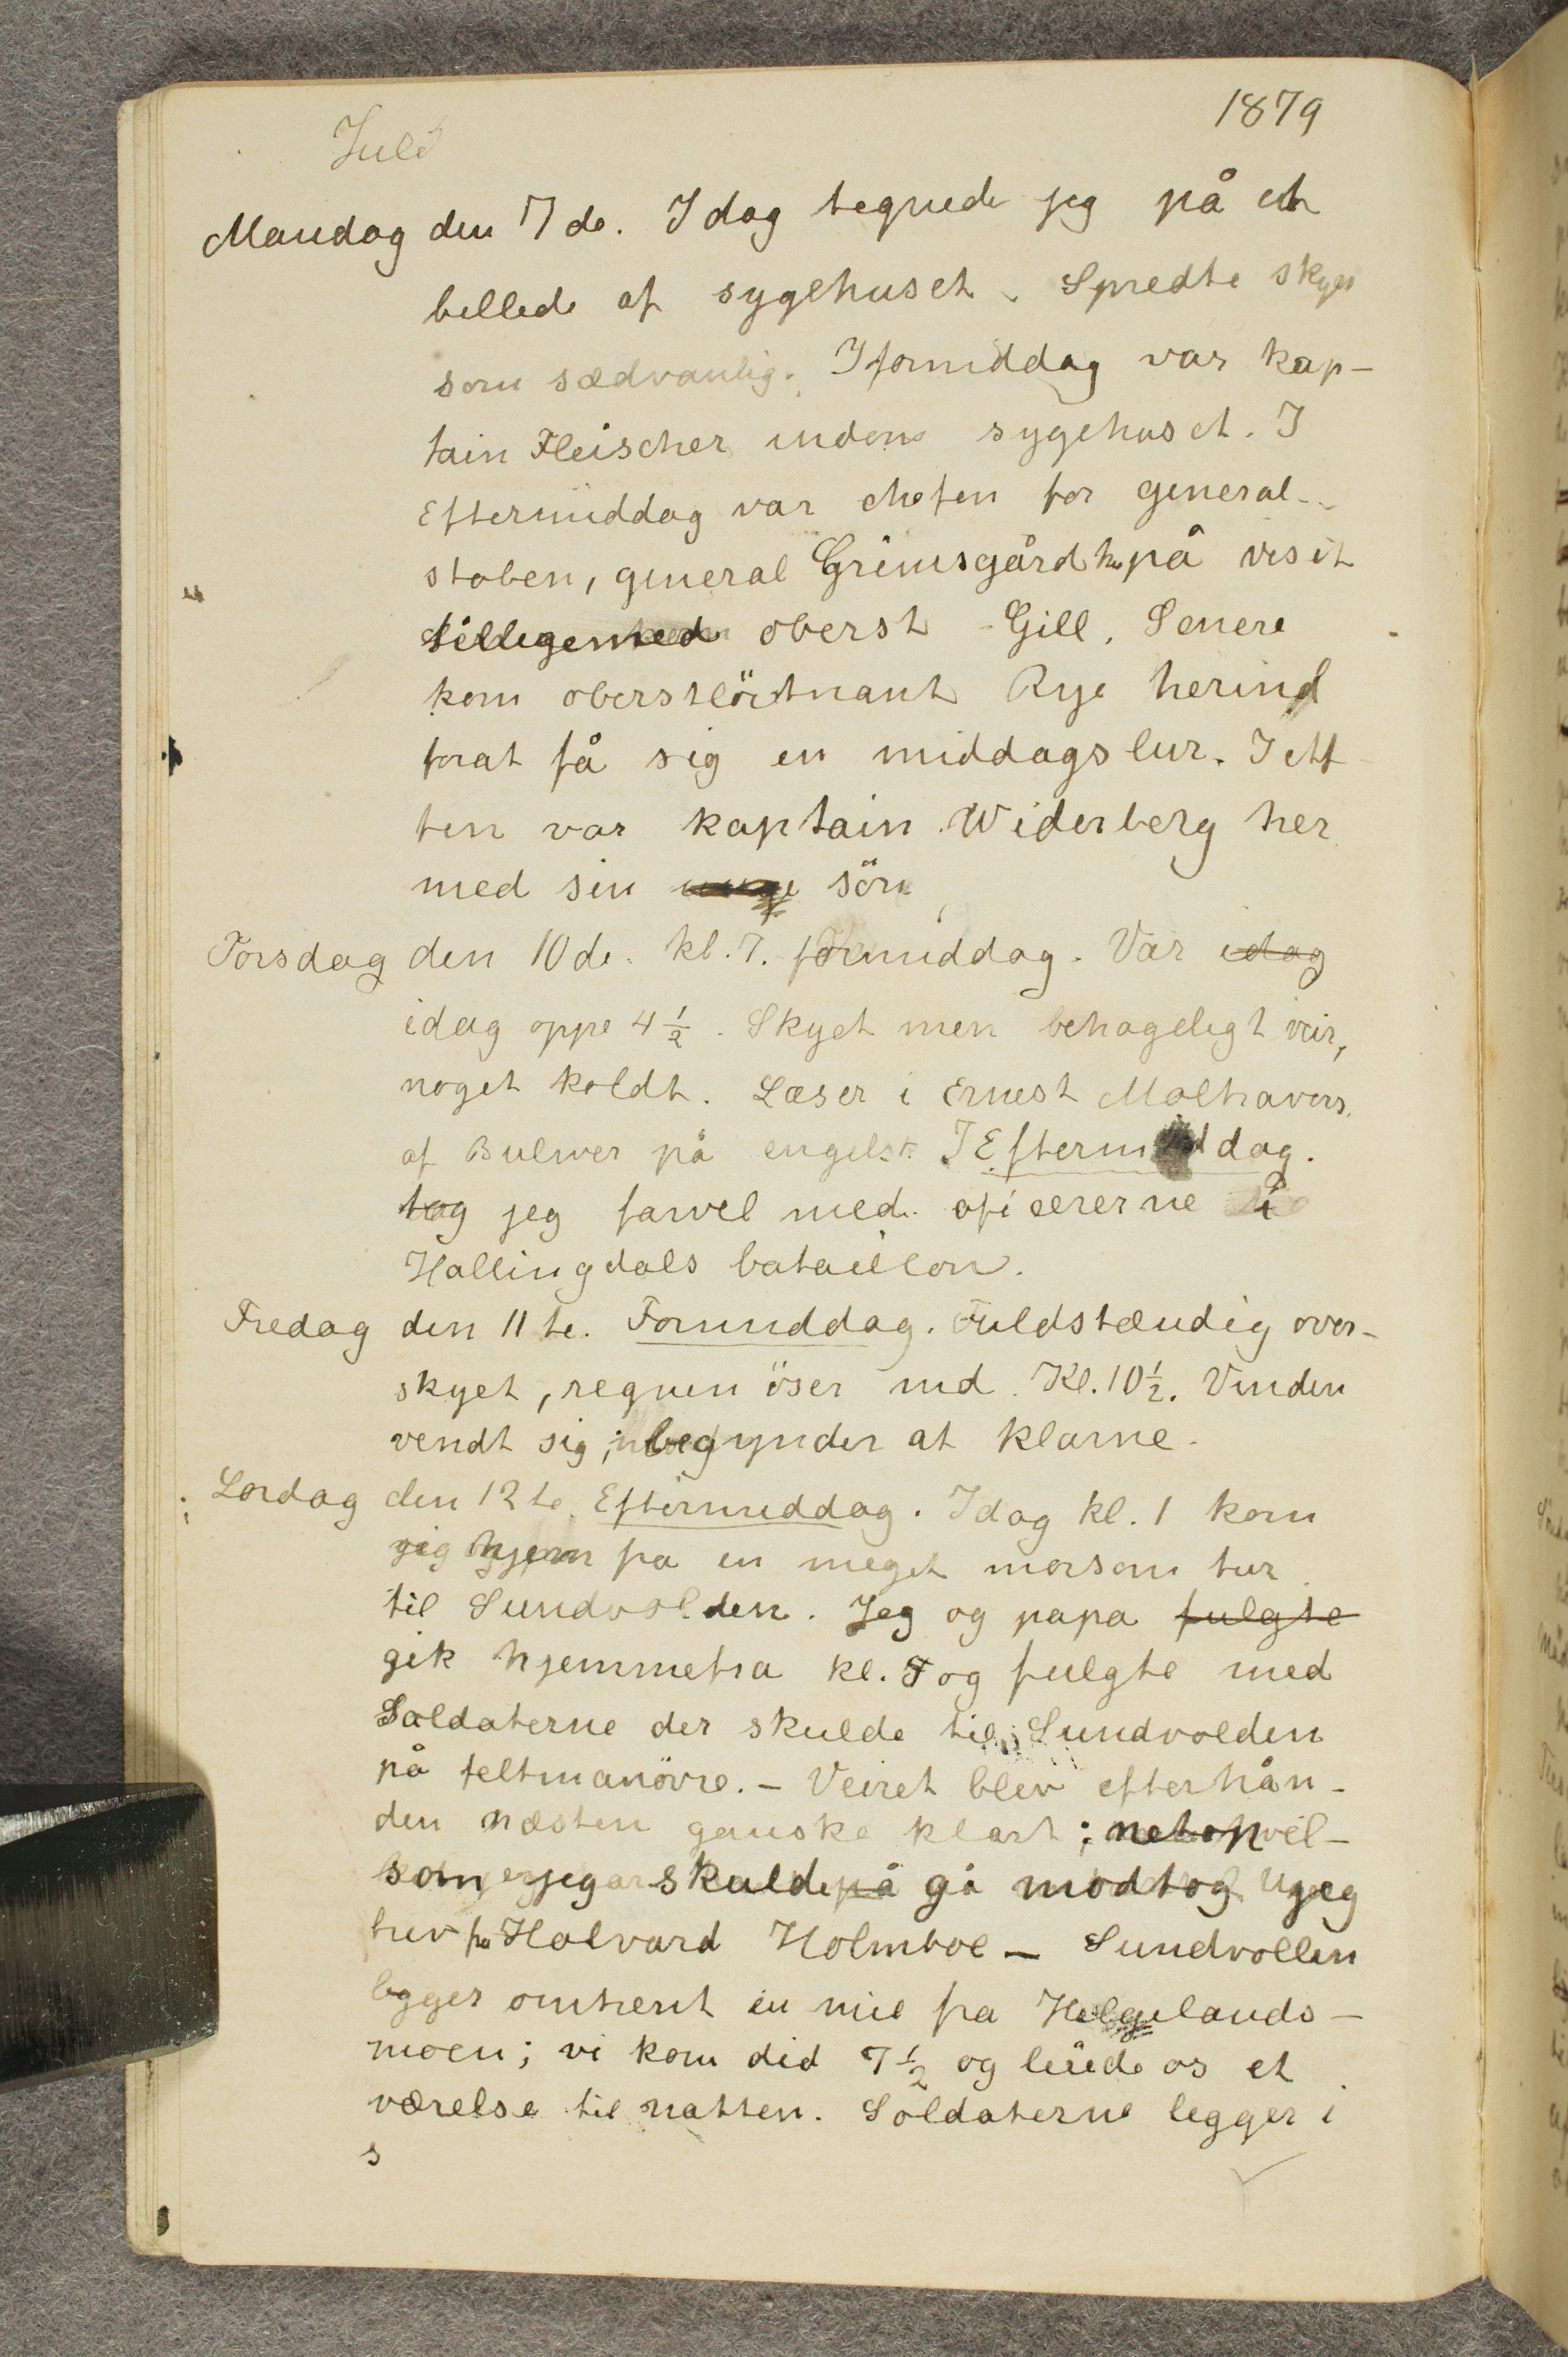 1879
Juli
Mandag den 7de. Idag tegnede jeg på et
billede af sygehuset. Spredte skyer
som sædvanlig. Iformiddag var kap-
tain Fleischer indom sygehuset. I
Eftermiddag var chefen for general-
staben, general Grimsgård her på visit
tilligemed oberst Gill. Senere
kom oberstlöitnant Rye herind
forat få sig en middagslur. I ett
ten var kaptain Widerberg her
med sin unge sön
Torsdag den 10de. kl. 7. formiddag. Var idag
idag oppe 4 1/2. Skyet men behageligt veir,
noget koldt. Læser i Ernest Maltravers
af Bulwer på engelsk. I Eftermiddag.
tog jeg farvel med. oficererne i
Hallingdals bataillon.
Fredag den 11te. Formiddag. Fuldstændig over-
skyet, regnen öser ned. Kl. 10 1/2. Vinden
vendt sig; begynder at klarne.
Lördag den 12te. Eftermiddag. Idag kl. 1 kom
jeg hjem fra en meget morsom tur
til Sundvolden. Jeg og papa fulgte
gik hjemmefra kl. 5 og fulgte med
Soldaterne der skulde til Sundvolden
på feltmanövre. - Veiret blev efterhån-
den næsten ganske klart; netop
som jeg skulde på gå modtog jeg
brev fra Halvard Holmboe - Sundvollen
ligger omtrent en mil fra Helgelands-
moen; vi kom did 7 1/2 og leiede os et
værelse til natten. Soldaterne ligger i
s